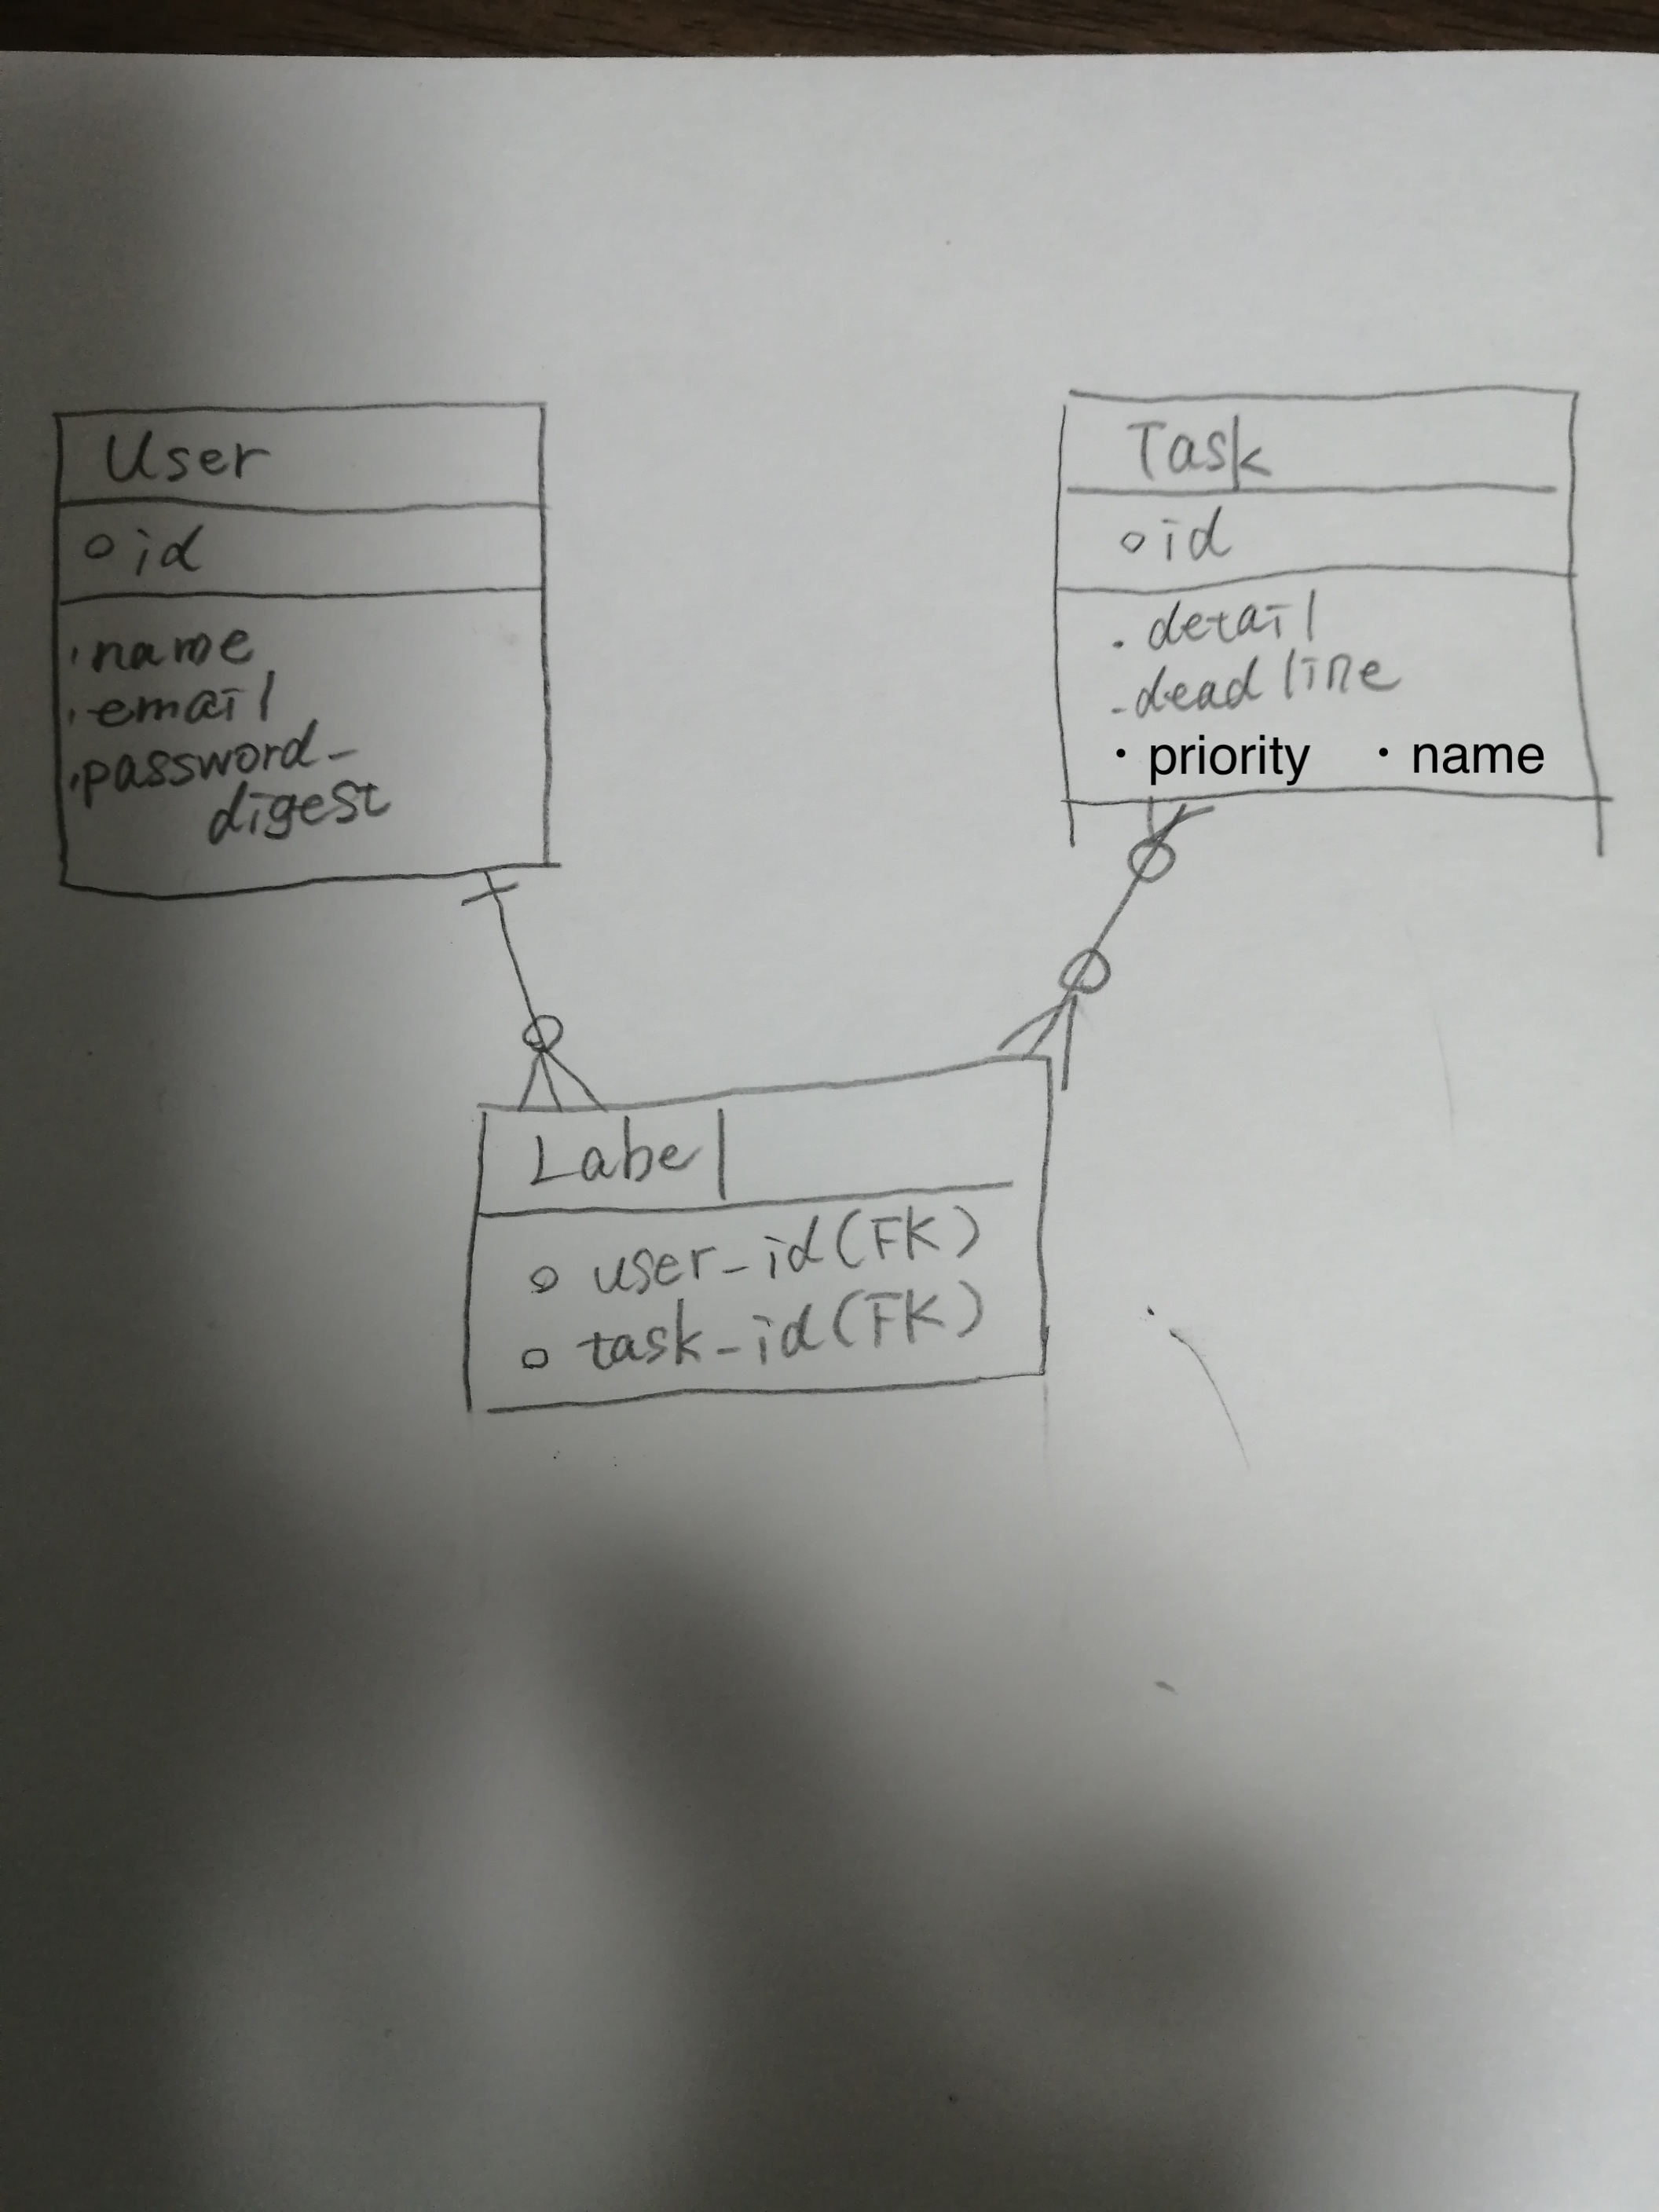 User
○ id
・name
・email
・password_
digest
Task
○ id
・detail
・deadline
・priority ・name
Label
○ user_id(FK)
○ task_id(FK)